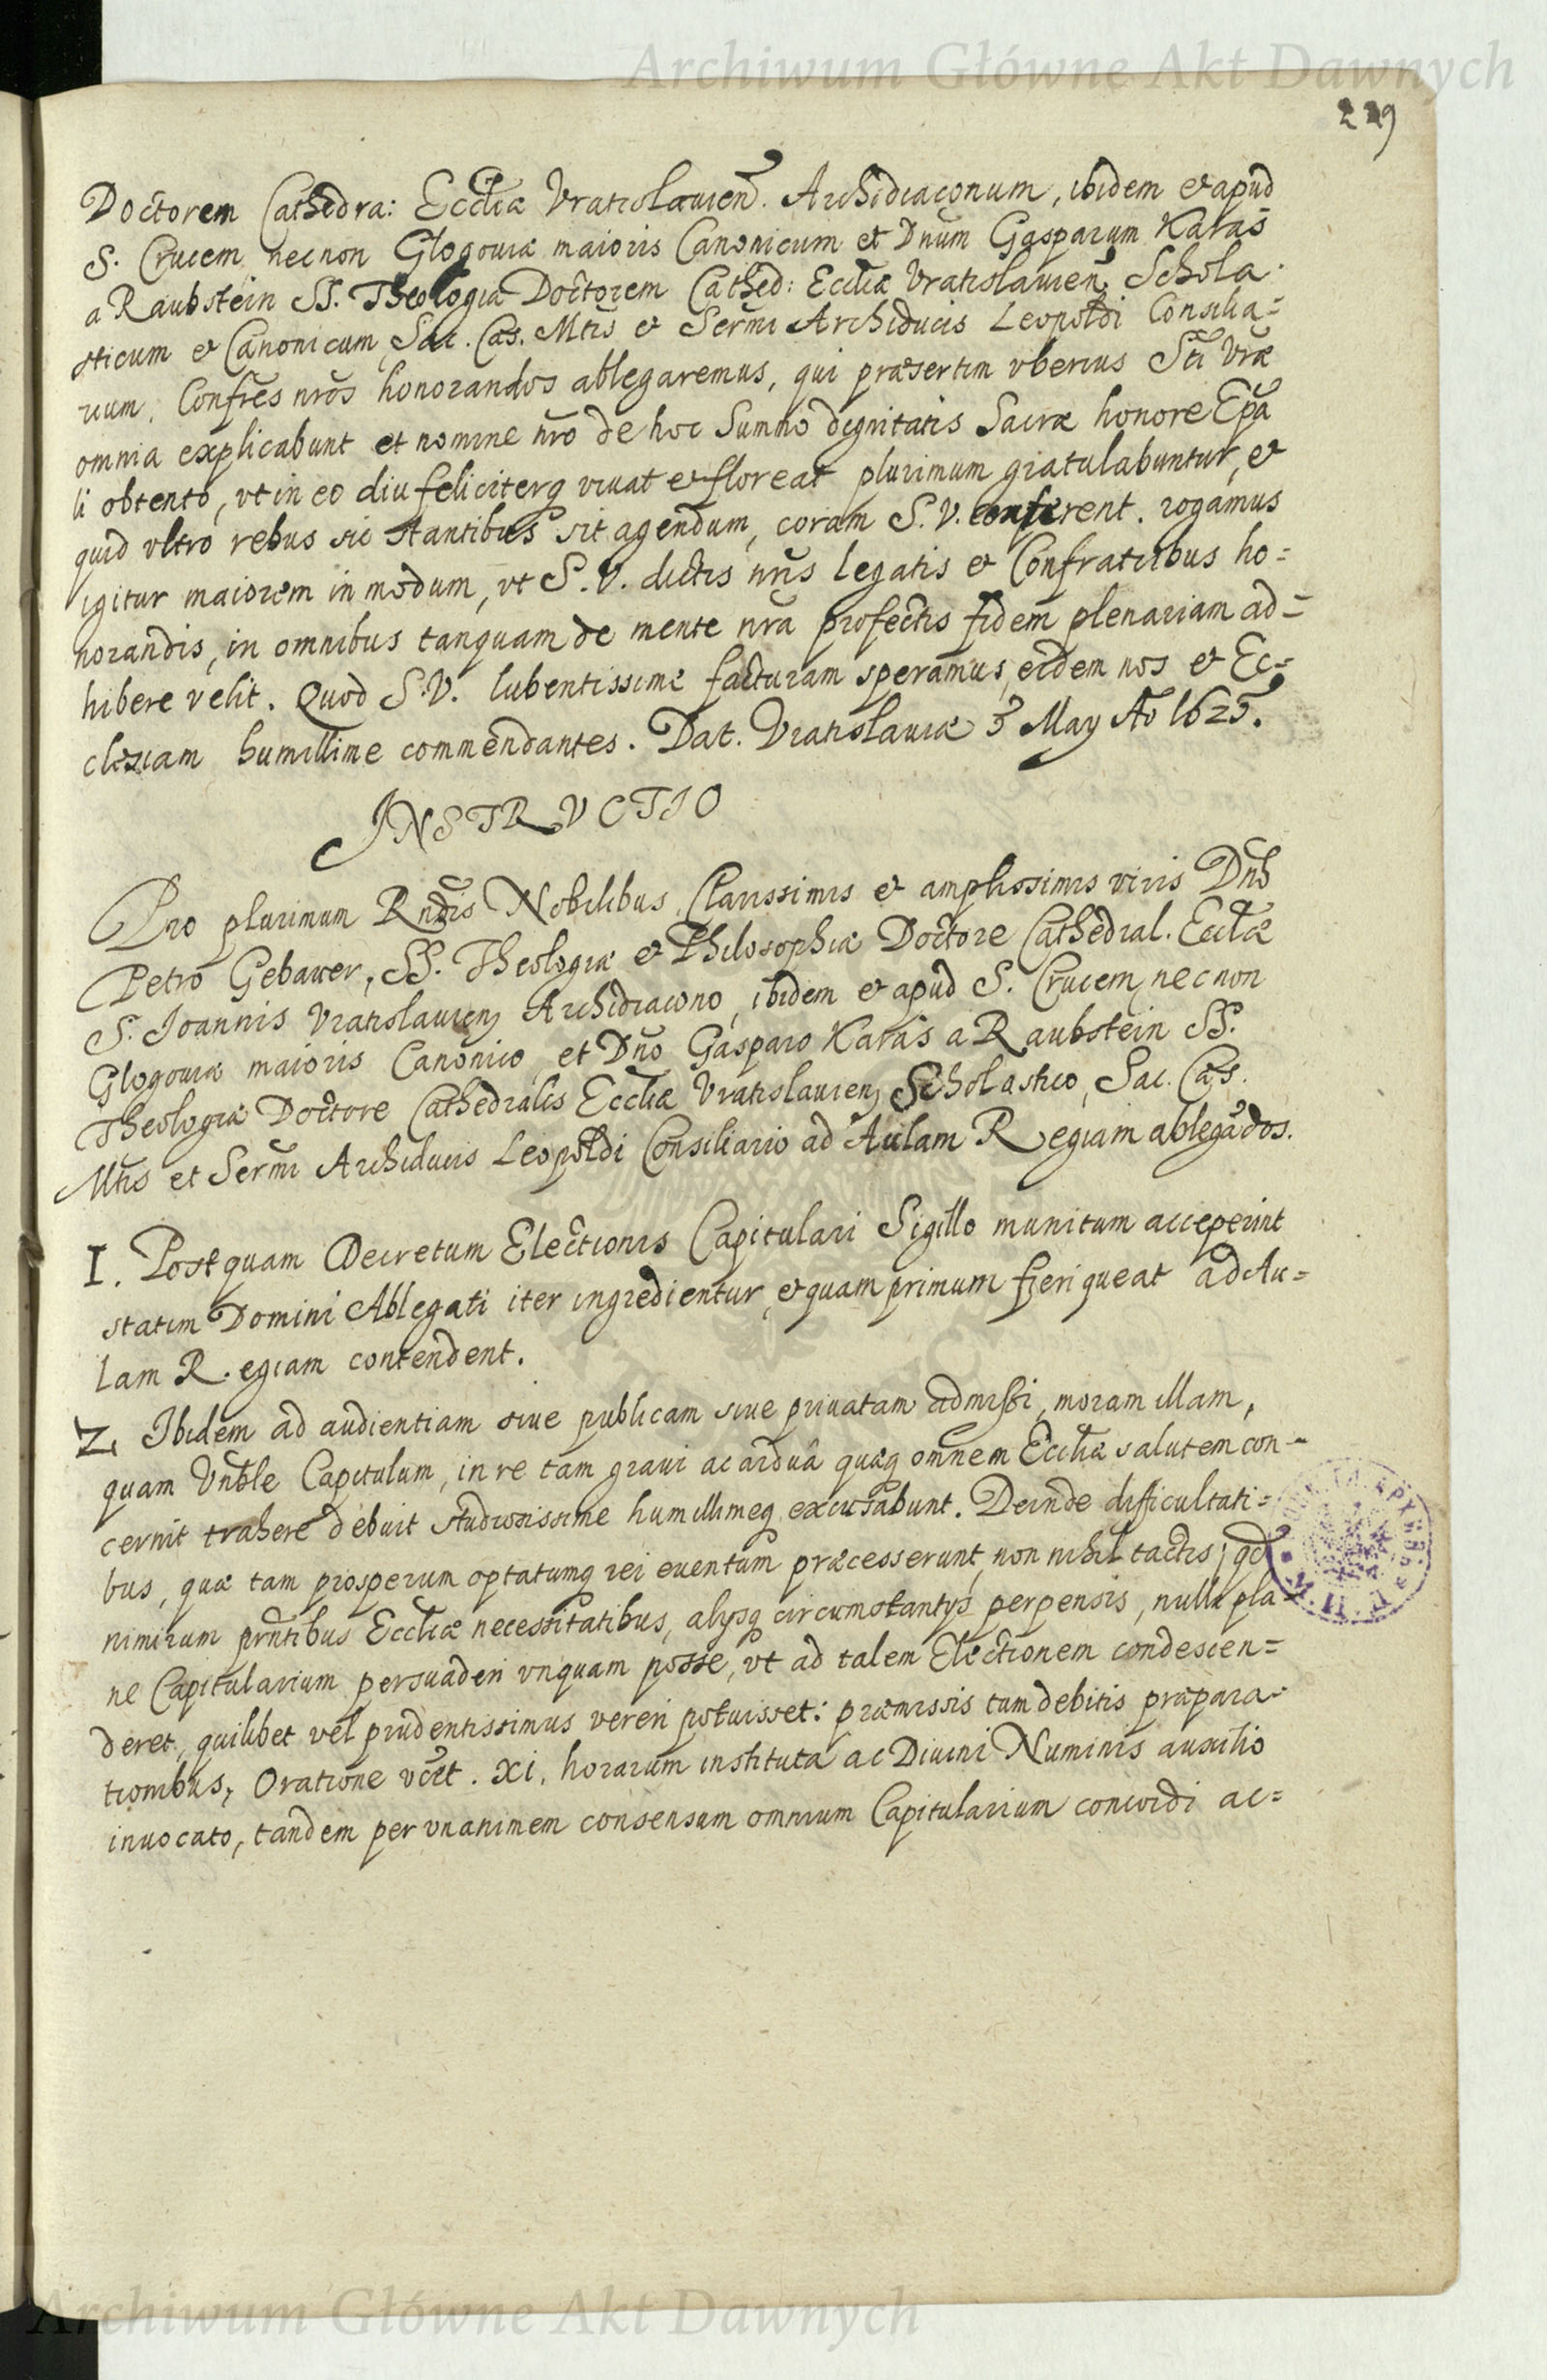 Archiwum Główne Akt Dawnych
229
Doctorem Cathedra: Eccliæ Vratislavien. Archidiaconum, ibidem et apud
S. Crucem necnon Glogoviæ maioris Canonicum et Dnum Gasparum Karas
a Raubstein SS. Theologiæ Doctorem Cathed: Eccliæ Vratislavien, Schola-
sticum et Canonicum, Sac. Cæs. Mtis et Sermi Archiducis Leopoldi Consilia=
rium, Confres nros honorandos ablegaremus, qui præsertim vberius Sti Vræ
omnia explicabunt et nomine nro de hoc Summo dignitatis Sacræ honore Epa
li obtento, vt in eo diu feliciterq vivat et floreat plurimum gratulabuntur, et
quid vltro rebus sic stantibus sit agendum, coram S. V. conferent. rogamus
igitur maiorem in modum, vt S. V. dictis nris legatis et Confratribus ho=
norandis, in omnibus tanquam de mente nra profectis fidem plenariam ad=
hibere velit. Quod S. V. lubentissime facturam speramus, eidem nos et Ec=
clesiam humillime commendantes. Dat. Vratislaviæ 3 May Ao 1625.
INSTRVCTIO
Pro plurimum Rndis Nobilibus, Clarissimis et amplissimis viris Dnis
Petro Gebawer, SS. Theologiæ et Philosophiæ Doctore Cathedral. Eccliæ
S. Joannis Vratislavien, Archidiacono, ibidem et apud S. Crucem, necnon
Glogoviæ maioris Canonico, et Dno Gasparo Karas a Raubstein SS.
Theologiæ Doctore Cathedralis Eccliæ Vratislavien, Scholastico, Sac. Cæs.
Mtis et Sermi Archiducis Leopoldi Consiliario ad Aulam Regiam ablegados.
I. Postquam Decretum Electionis Capitulari Sigillo munitum acceperint
statim Domini Ablegati iter ingredientur, et quam primum fieri queat ad Au=
lam Regiam contendent.
2. Ibidem ad audientiam sive publicam sive privatam admissi, moram illam,
quam Vnble Capitulum, in re tam gravi ac arduâ quæq omnem Eccliæ salutem con=
cernit trahere debuit studiosissime humillimeq excusabunt. Deinde difficultati=
bus, quæ tam prosperum optatumq rei eventum præcesserunt, non nihil tactis; qd
nimirum prntibus Eccliæ necessitatibus, alysq circumstantys perpensis, nulli pla=
ne Capitularium persuaderi vnquam posse, vt ad talem Electionem condescen=
deret, quilibet vel prudentissimus vereri potuisset: præmissis tum debitis præpara=
tionibus, Oratione vclt. XL. horarum instituta ac Divini Numinis auxilio
invocato, tandem per vnanimem consensum omnium Capitularium concordi ac=
Archiwum Główne Akt Dawnych